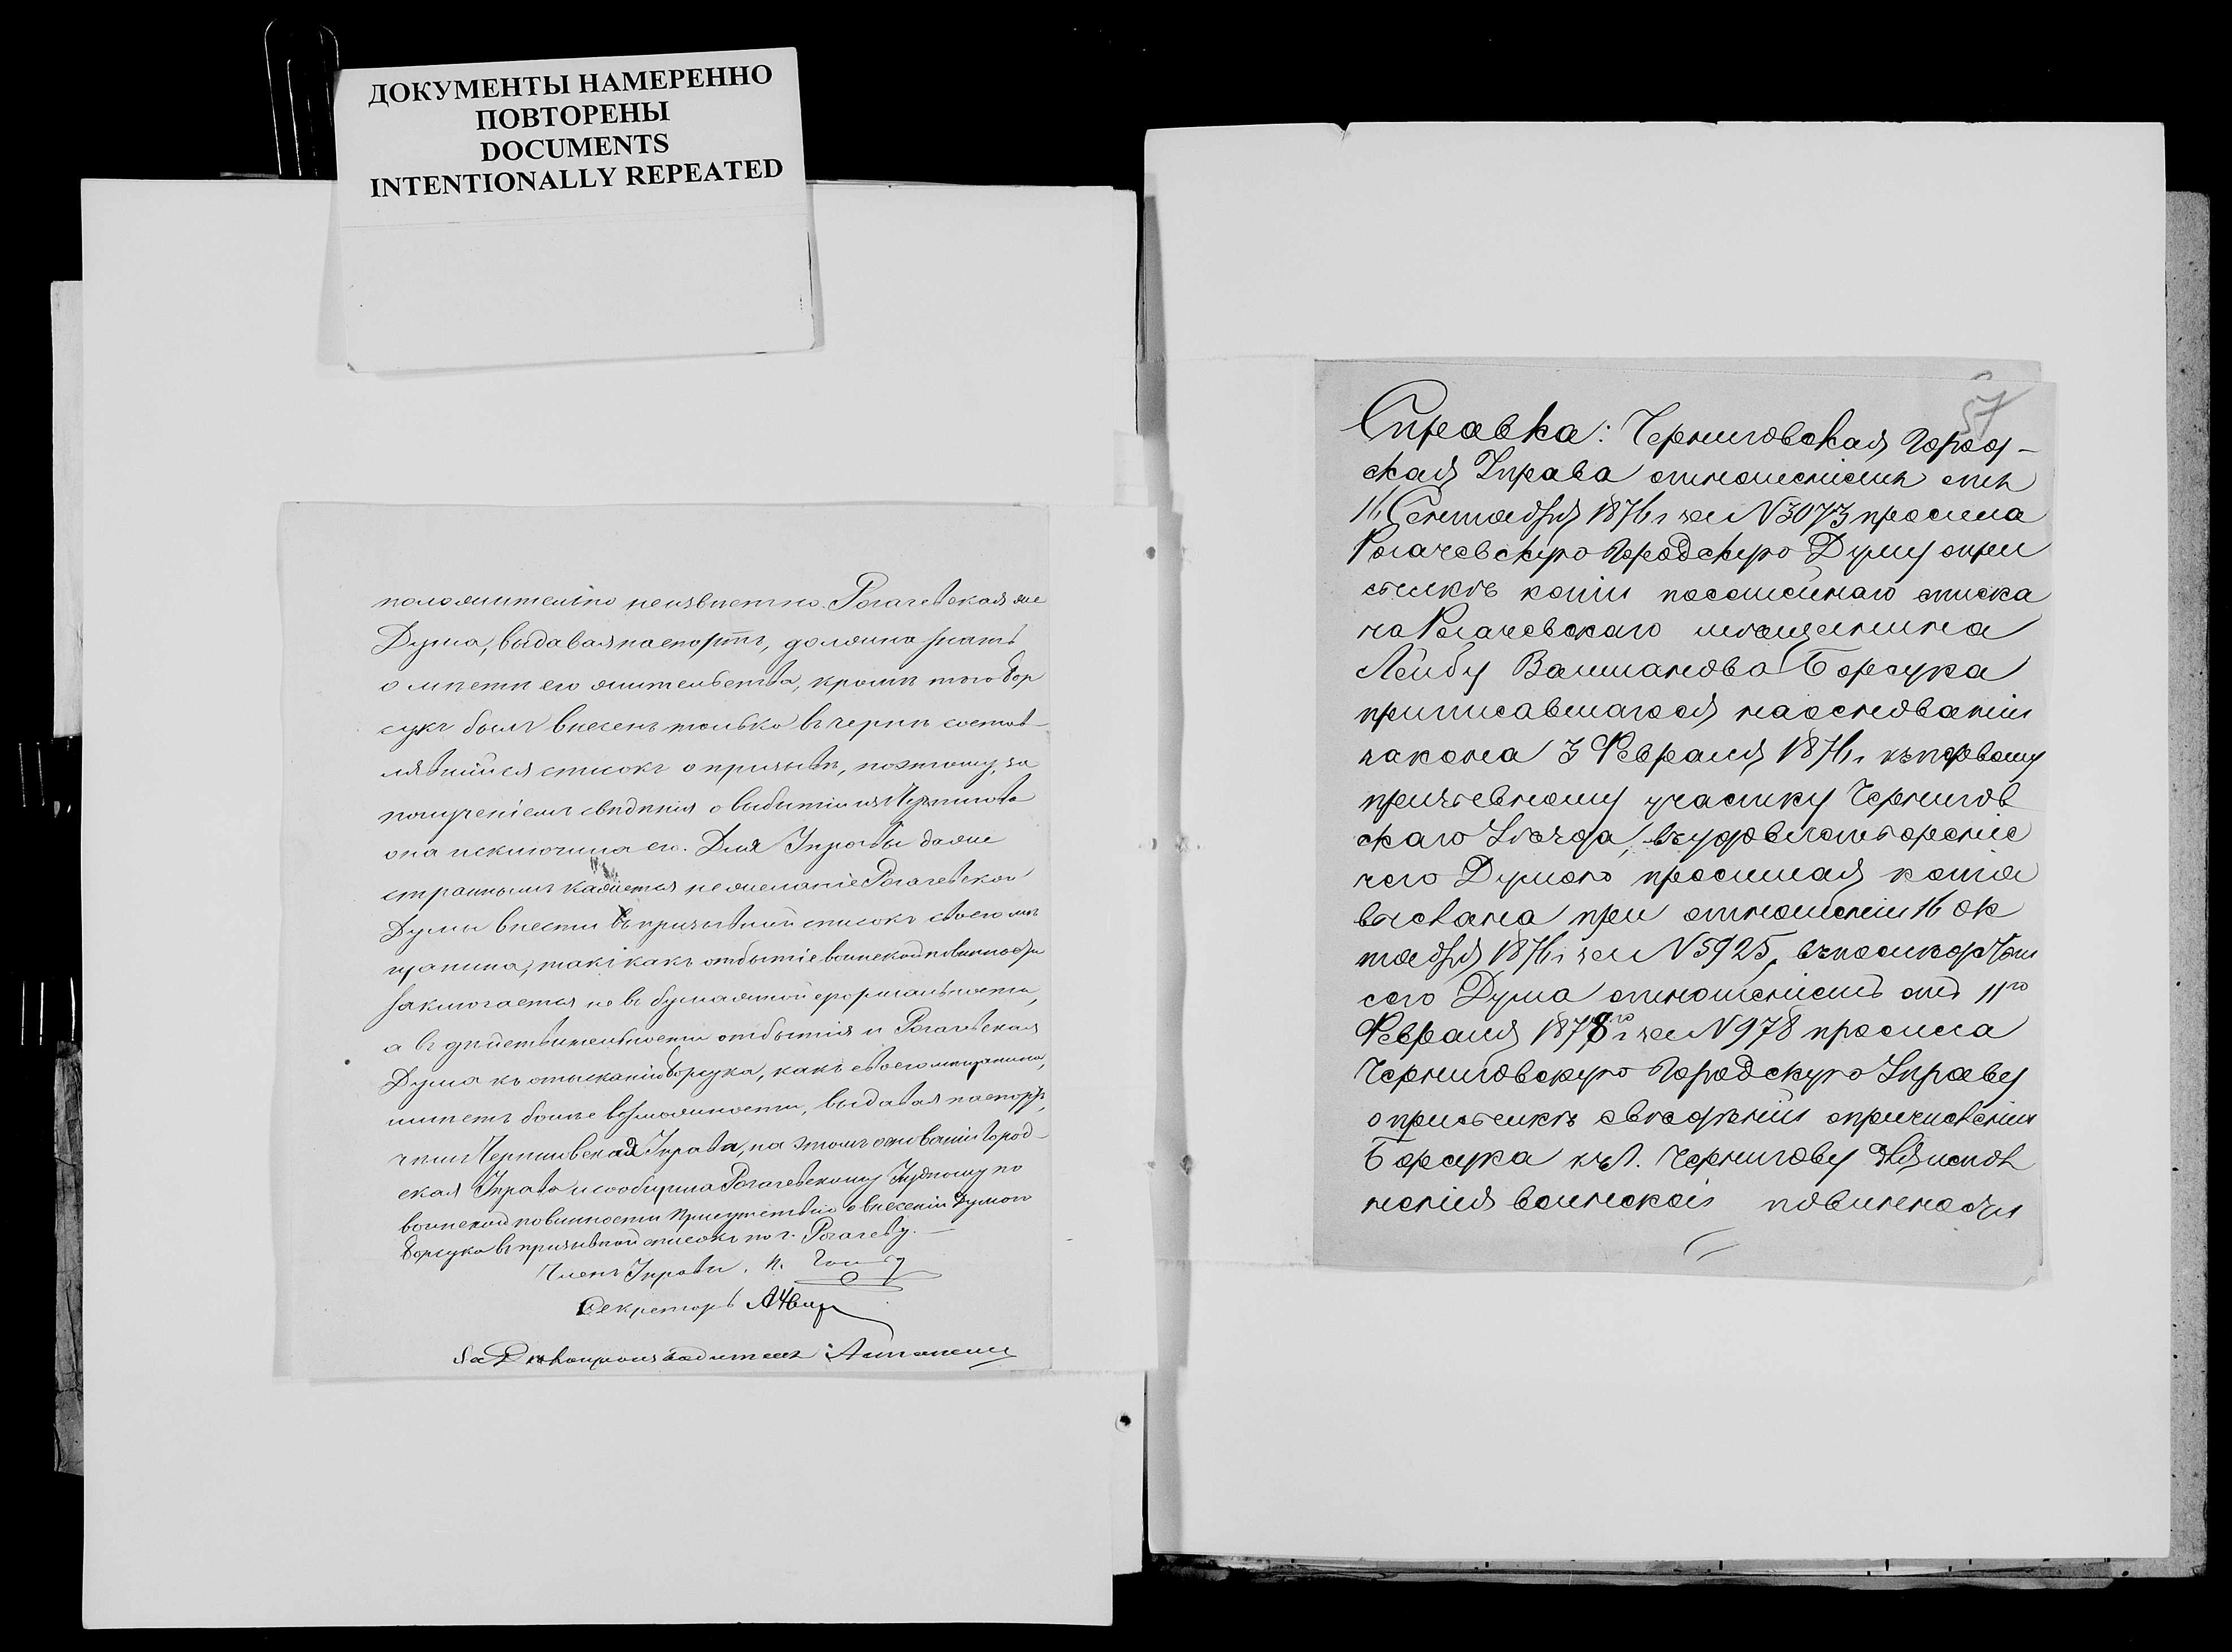 ДОКУМЕНТЫ НАМЕРЕННО
ПОВТОРЕНЫ
DOCUMENTS
INTENTIONALLY REPEATED
положительно неизвѣстно. Рогачевская же
Дума, выдавая паспортъ, должна знать
о мѣстѣ его жительства, кромѣ того Бор
сукъ былъ внесенъ только въ черни состав-
лявшийся списокъ о призывѣ, поэтому, за
полученіемъ свѣдѣнія о выбытіи изъ Чернигова
она исключила его. Для Управы даже
страннымъ кажется нежеланіе Рогачевской
Думы внести въ призывной списокъ своего мѣ
щанина, такъ какъ отбытіе воинской повинности
заключается не въ бумажной формальности,
а въ дѣйствительности отбытія и Рогачевская
Дума къ отысканію Борсука, какъ своего мѣщанина,
имѣетъ болѣе возможности, выдавая паспортъ,
чѣмъ Черниговская Управа, на этомъ основаніи Город-
ская Управа и сообщила Рогачевскому Уѣздному по
воинской повинности Присутствію о внесеніи Думою
Борсука въ призывной списокъ по г. Рогачеву. —
Членъ Управы, П.
Секретарь
За Дѣлопроизводителя
57
Справка: Черниговская Город-
ская Управа отношеніемъ отъ
16 Сентября 1876 г за N 3073 просила
Рогачевскую Городскую Думу о при
сылкѣ копіи посемейнаго списка
на Рогачевскаго мѣщанина
Лейбу Вашманова Борсука
приписавшагося на основаніи
закона 3 Февраля 1876 г. къ первому
призывному участку Чернигов
скаго Уѣзда, въ удовлетвореніе
чего Думою просимая копія
выслана при отношеніи 16 ок
тября 1876 г за N 5925, въ послѣдствіи
сего Дума отношеніемъ отъ 11го
Февраля 1878 г за N 978 просила
Черниговскую Городскую Управу
о присылкѣ свѣдѣній о причисленіи
Борсука къ г. Чернигову для испол
ненія воинской повинности